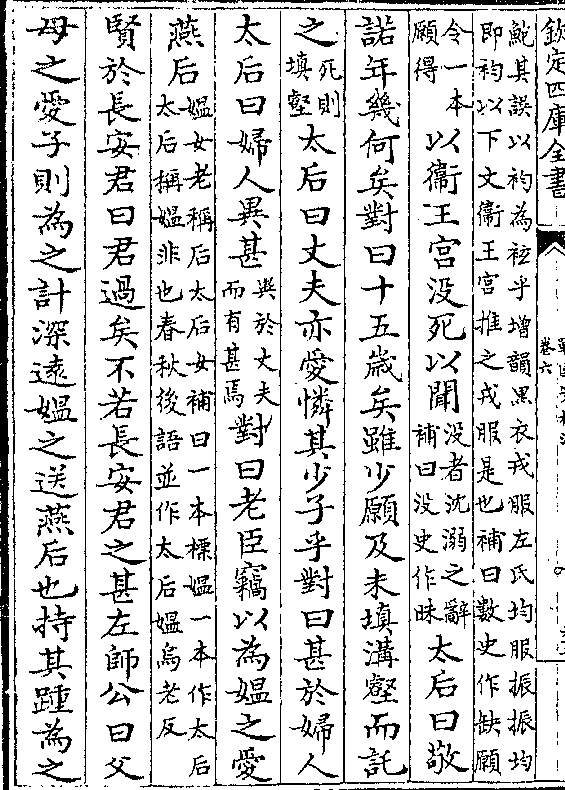 欽定四庫全書
卷六
鮀其誤以袀為袨乎増韻黒衣戎服左氏均服振振均
即袀以下文衞王宫推之戎服是也補曰數史作缺願
令一本
願得以衞王宫没死以聞没者沈溺之辭
補曰没史作昧太后曰敬
諾年幾何矣對曰十五歳矣雖少願及未填溝壑而託
之死則
填壑太后曰丈夫亦愛憐其少子乎對曰甚於婦人
太后曰婦人異甚異於丈夫
而有甚焉對曰老臣竊以為媪之愛
燕后媪女老稱后太后女補曰一本標媪一本作太后
太后稱媪非也春秋後語並作太后媪烏老反
賢於長安君曰君過矣不若長安君之甚左師公曰父
母之愛子則為之計深逺媪之送燕后也持其踵為之